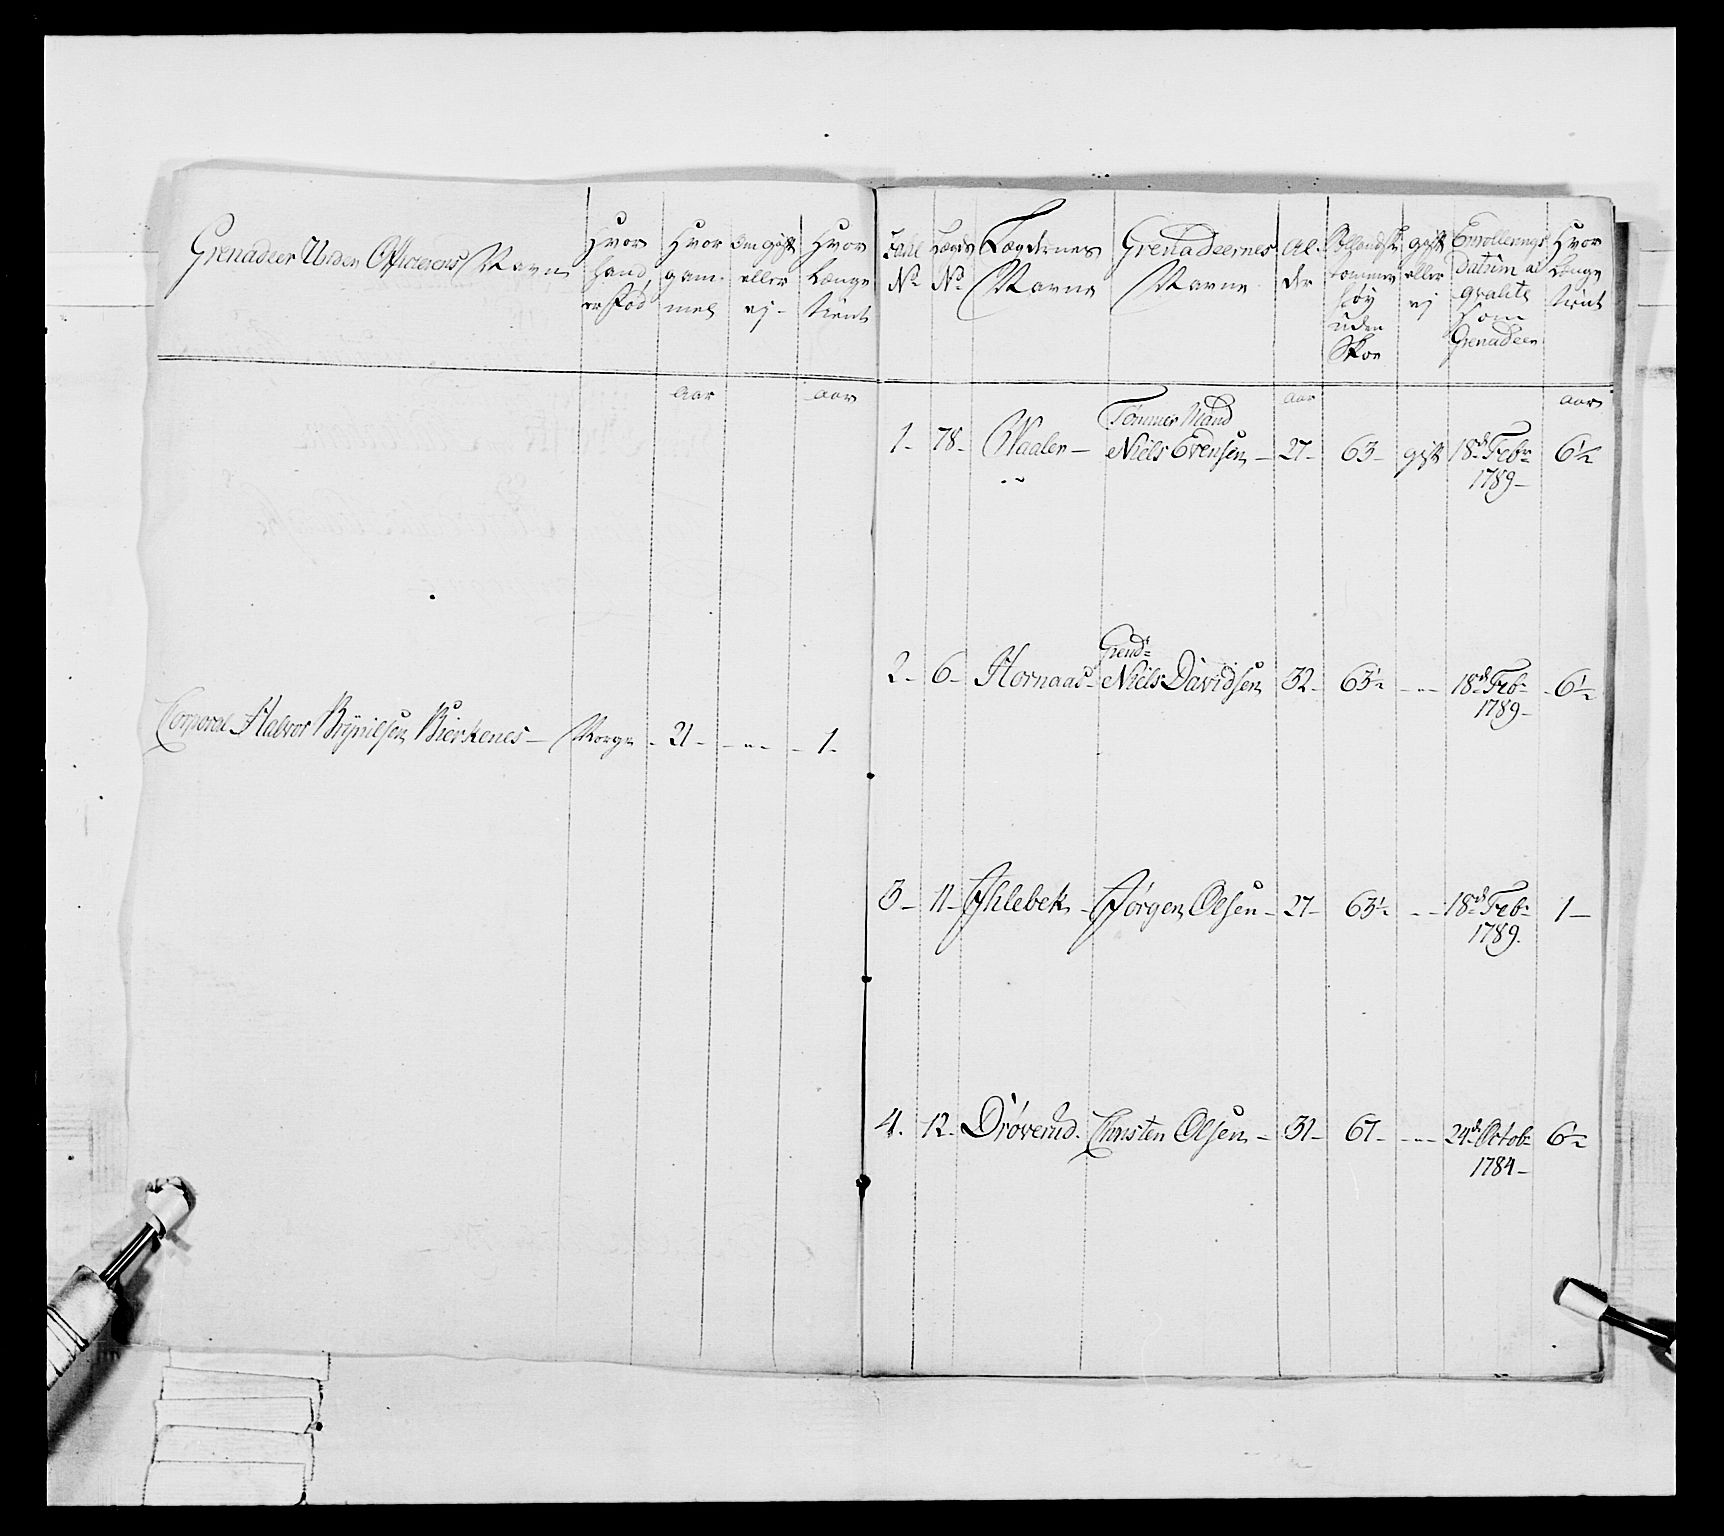 Grenadeer Under Officerers Navn
Hvor
hand
er fød
Hvor
gam-
mel
Om gift
eller
ej -
Hvor
Længe
tient
Aar
aar
Corporal Halvor Brynilsen Bierkenes - Norge - 21 - - „ - - 1 -
No
Lægds
No
Lægdernes
Navne
Grenadeernes
Navne
Al-
der
Tommer
høy
uden
Skoe
gift
eller
ej
Enrollerings
Datum al
qvalite
som
Grenadeer
Hvor
Længe
tient
aar
aar
Tømmer Mand
1 - 78 - Waaler - Niels Evensen - 27 - 63 - gift 18de Febr 6½
1789 -
Grend=
2 - 6 - Hornaas - Niels Davidsen 32 - 63½ - „ - 18de Feb= - 6½
1789 -
3 - 11 - Ihlebek - Jørgen Olsen - 27 - 63½ - „ - 18de Feb= 1 -
1789.
4. 12 - Drøverud. Christen Olsen - 31 - 67 - - „ - 24de Octob=
1784 -